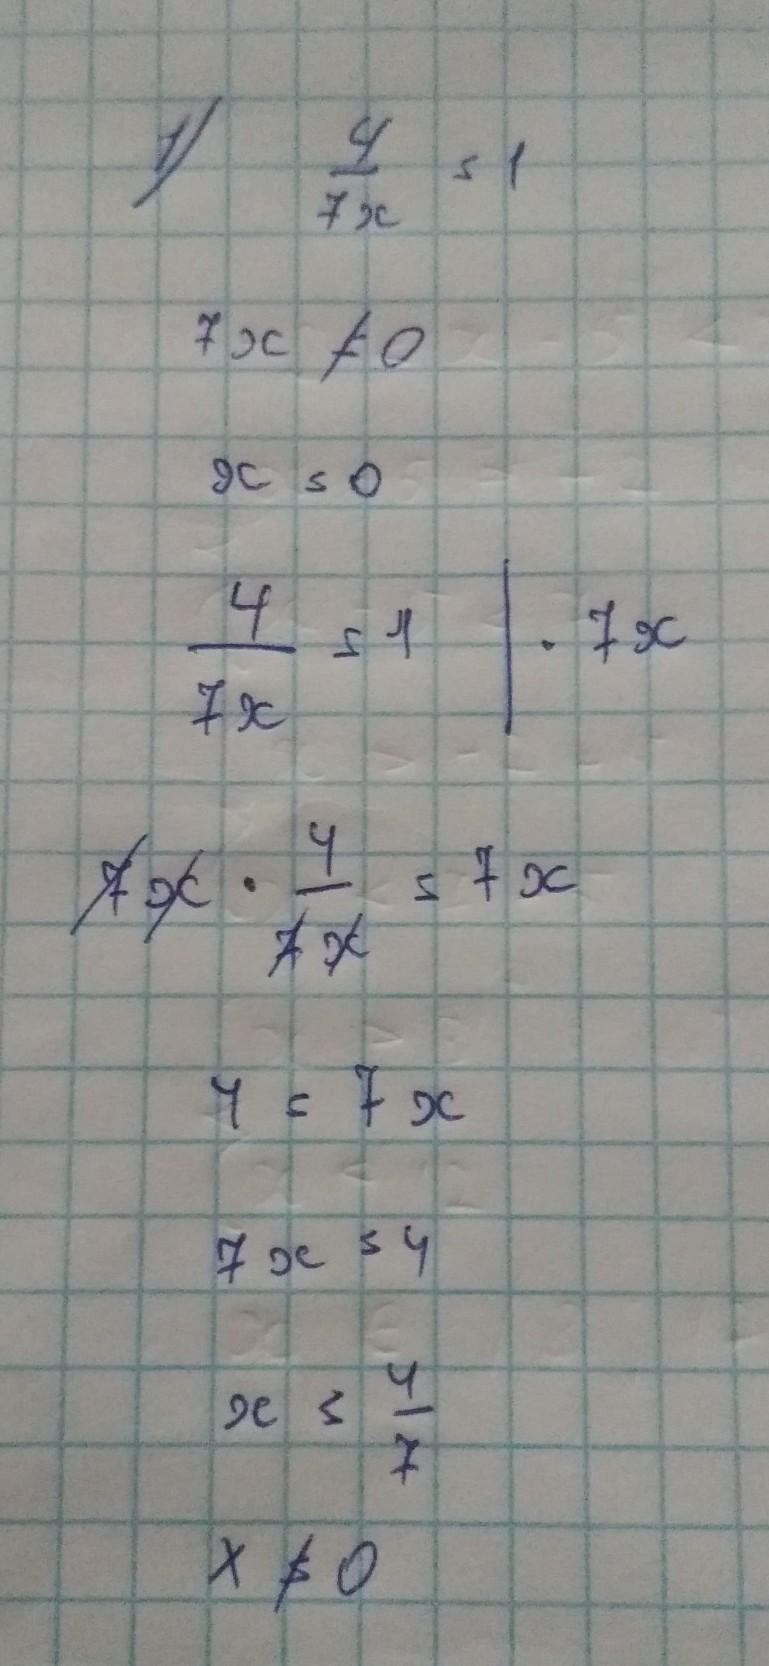 1) 4/7x = 1
7x ≠ 0
x = 0
4/7x = 1 | · 7x
7x · 4/7x = 7x
4 = 7x
7x = 4
x = 4/7
x ≠ 0